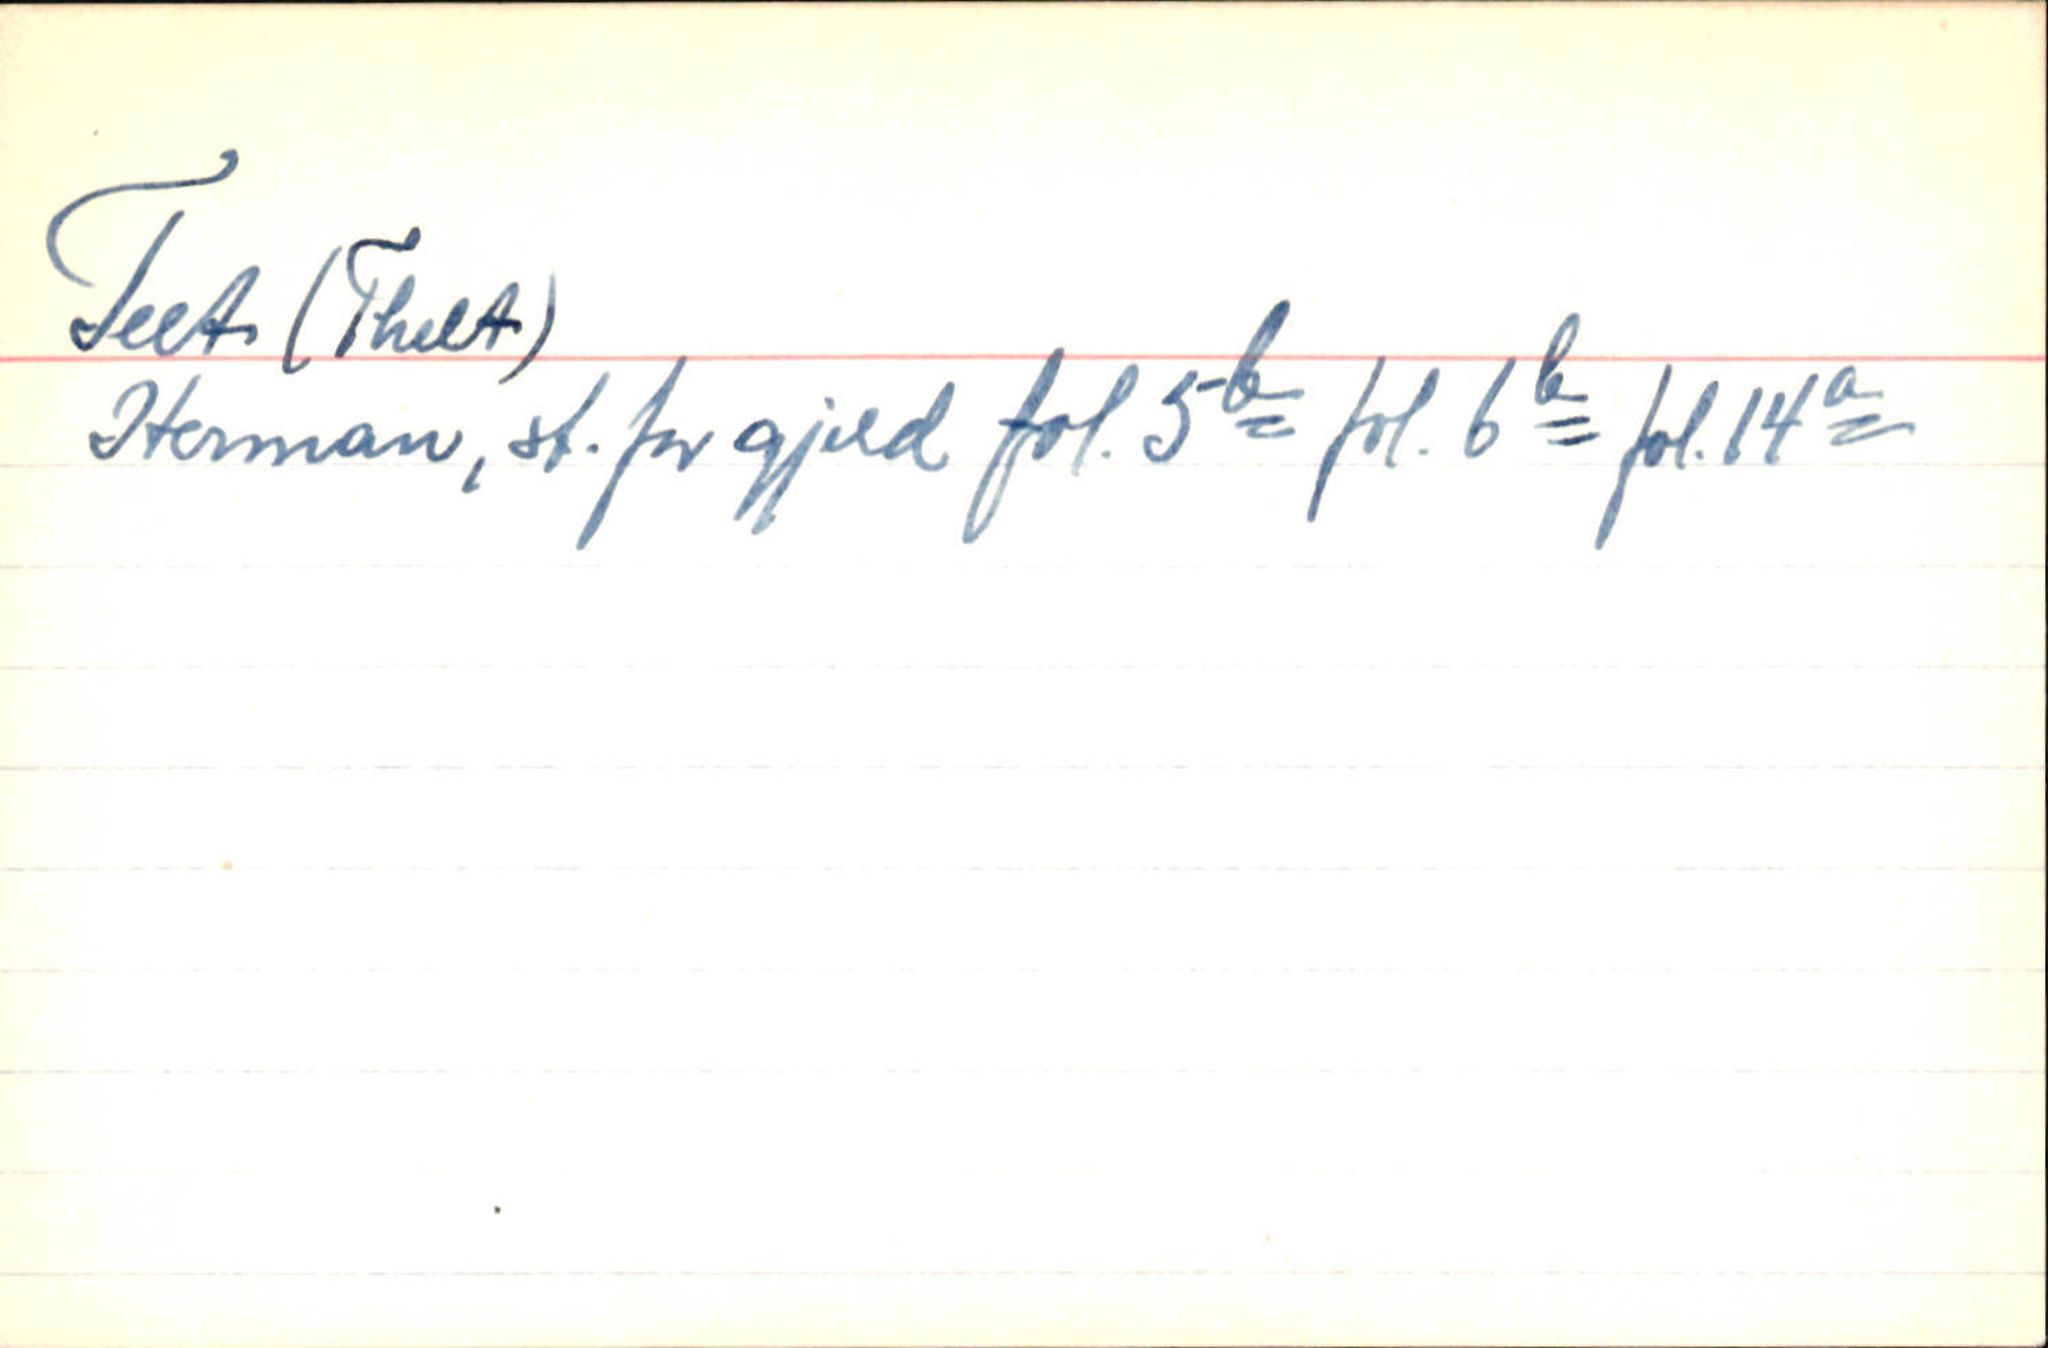 Teet (Theet)
Herman, st. for gjeld fol. 5b fol. 6b fol. 14a